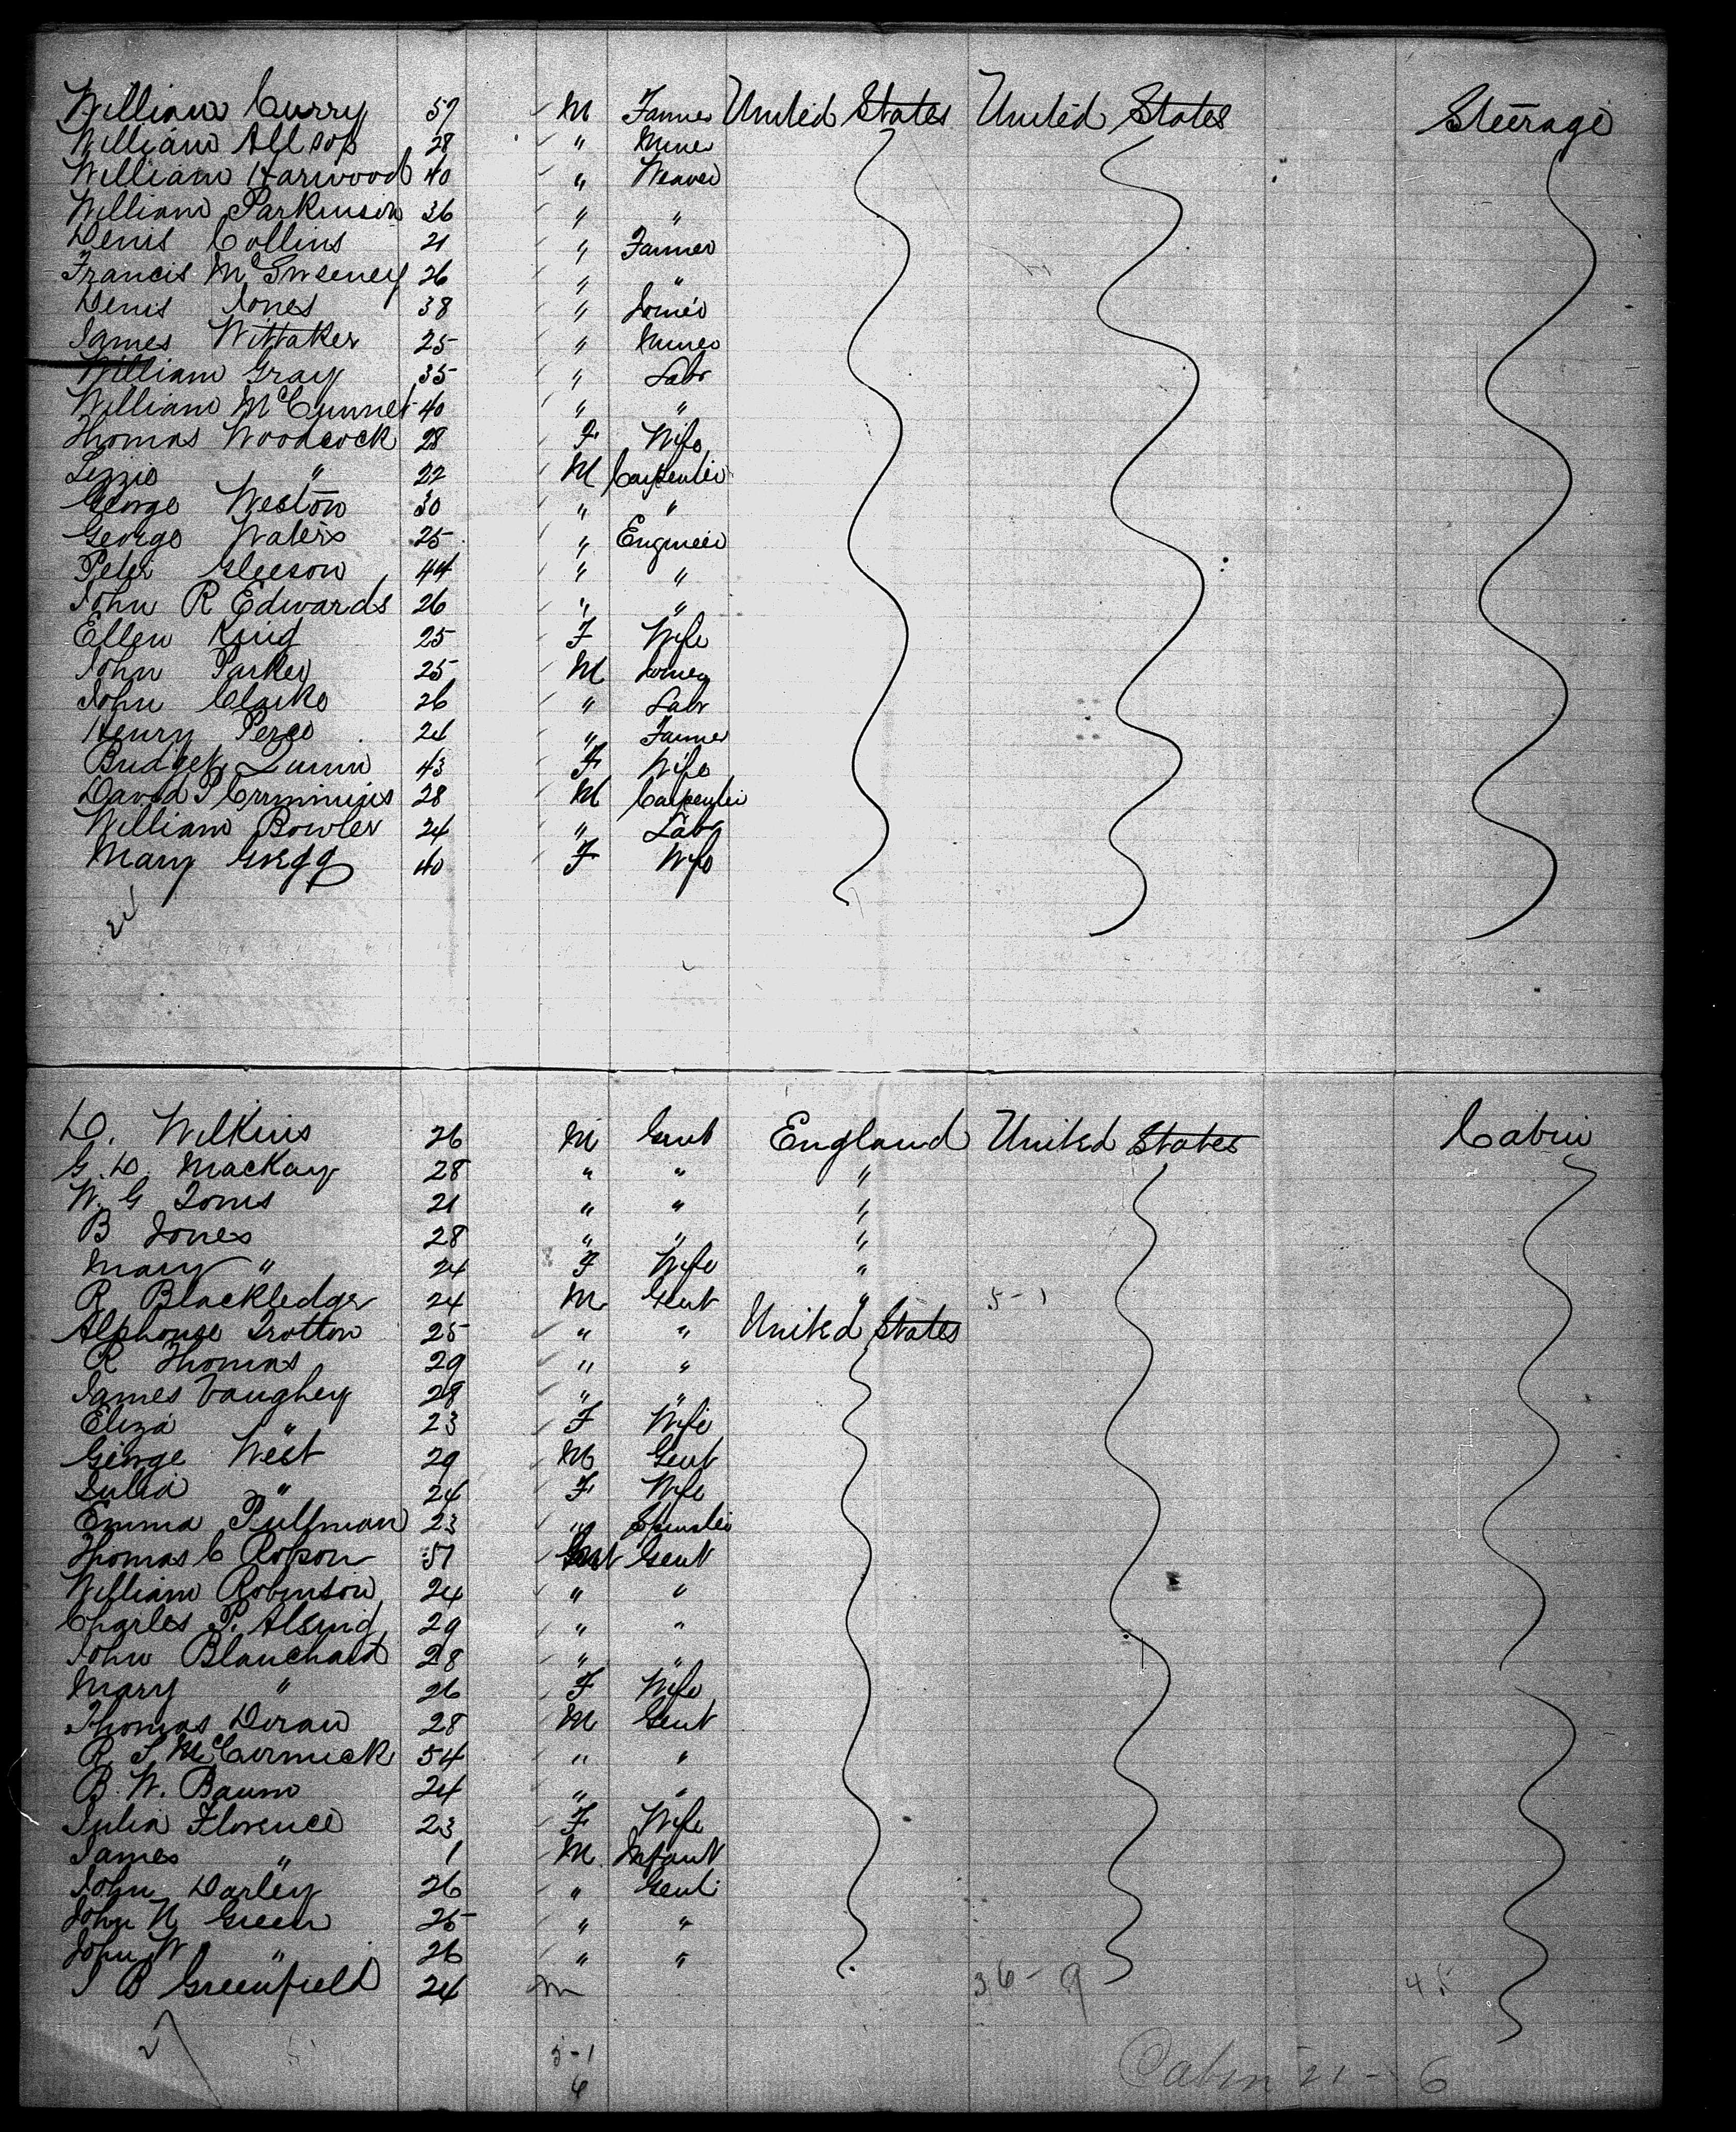 William Curry 57 M Farmer United States United States Steerage
William Allsop 28 " Miner
William Harwood 40 " Weaver
William Parkinson 36 " "
Denis Collins 21 " Farmer
Francis McSweeney 26 " "
Denis Jones 38 " Joiner
James Wittaker 25 " Miner
William Gray 35 " Labr
William McCunnet 40 " "
Thomas Woodcock 28 F Wife
Lizzie " 22 M Carpenter
George Weston 30 " "
George Waters 25 " Engineer
Peter Gleeson 44 " "
John R Edwards 26 " "
Ellen King 25 F Wife
John Parker 25 M
John Clarke 26 " Labr
Henry Perce 24 " Farmer
Bridget Quinn 43 F Wife
David P Crimmins 28 M Carpenter
William Bowler 24 " Labr
Mary Gregg 40 F Wife
24
D. Wilkins 26 M Gent England United States Cabin
G. D. Mackay 28 " " "
W. G Toms 21 " " "
B Jones 28 " " "
Mary " 24 F Wife "
R Blackledge 24 M Gent " 5-1
Alphonse Trotton 25 " " United States
R Thomas 29 " "
James Vaughey 28 " "
Eliza " 23 F Wife
George West 29 M Gent
Julia " 24 F Wife
Emma Pullman 23 " Spinster
Thomas C Robson 51 Gent
William Robinson 24 " "
Charles P. Alsing 29 " "
John Blanchard 28 " "
Mary " 26 F Wife
Thomas Doran 28 M Gent
R. S. McCormick 54 " "
B. W. Baum 24 " "
Julia Florence 23 F Wife
James " 1 M Infant
John Darley 26 " Gent
John N Green 25 " "
John W " 26 " "
J B Greenfield 24 m 36-9 45
5-1
6 Cabin 21-6